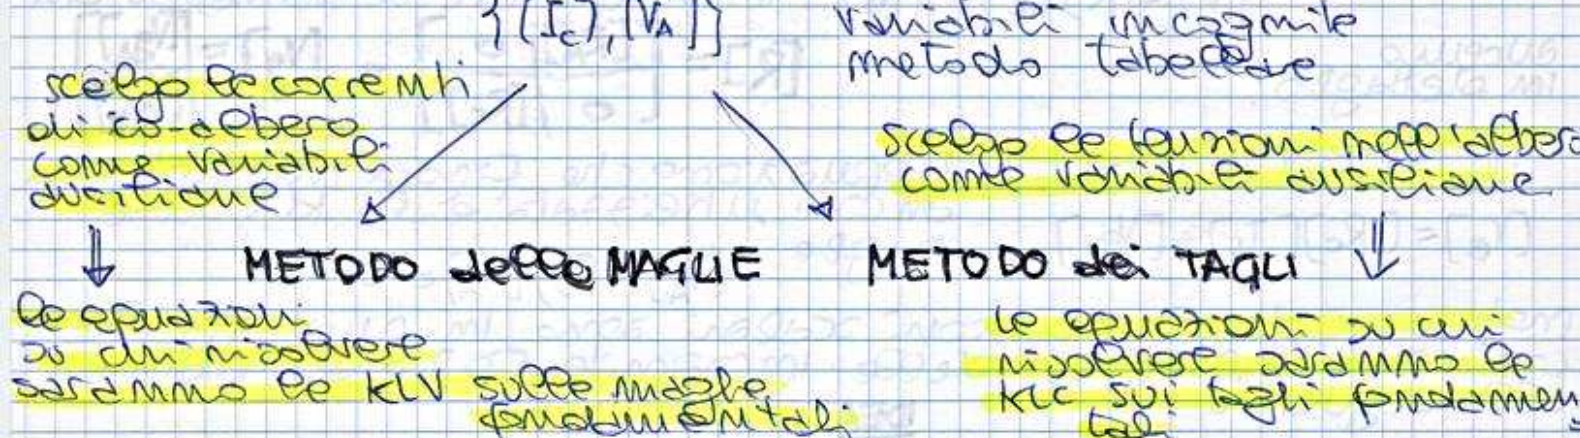 {[Ic], [VA]}
variabili incognite
metodo tabellare
scelgo le correnti
di co-albero
come variabili
ausiliarie
scelgo le tensioni nell'albero
come variabili ausiliarie
METODO delle MAGLIE
METODO dei TAGLI
le equazioni
su cui risolvere
saranno le KLV sulle maglie
fondamentali
le equazioni su cui
risolvere saranno le
KLC sui tagli fondamen
tali